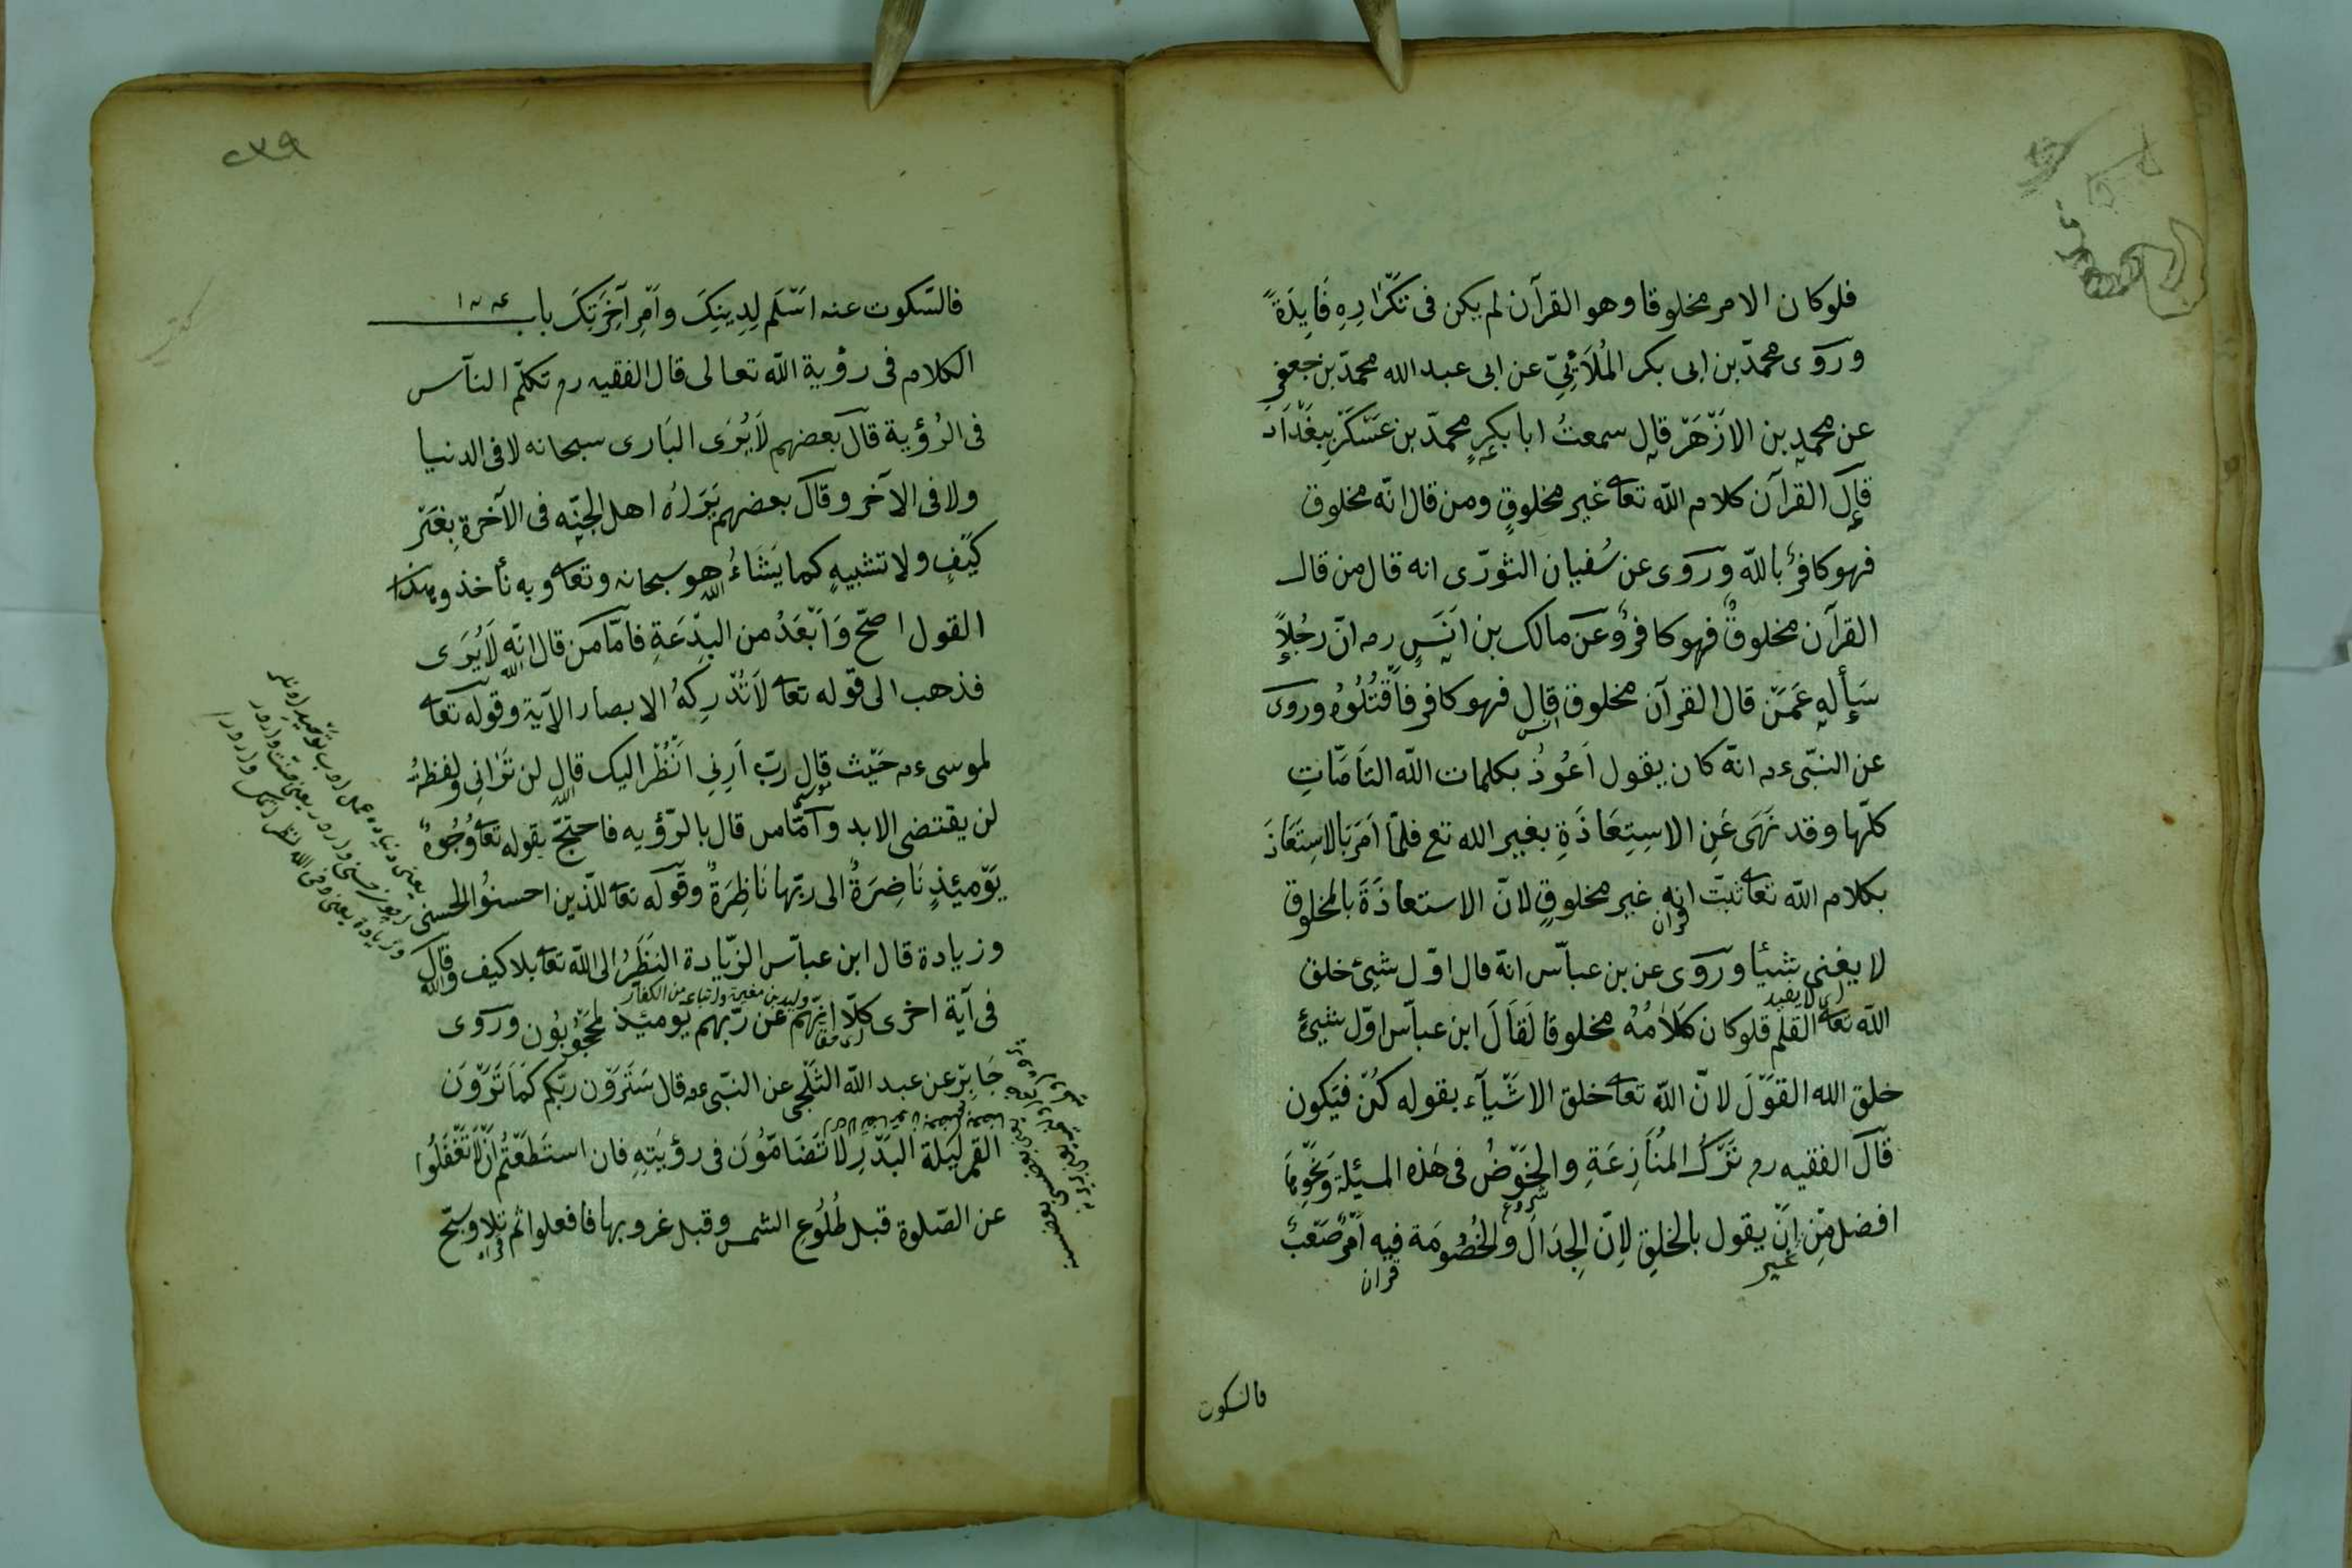 فلو كان الامر مخلوقا وهو القرآن لم يكن فى تكْرَارِهِ فَايِدَةً
ورَوَى محمدّ بن ابى بكر المُلَائِيّ عن ابى عبد الله محمدّ بن جعفرٍ
عن محمدٍ بن الازْهَرْ قال سمعتُ ابا بكرٍ محمدّ بن عَسْكَرْ بِبَغْدَادَ
قال القرآن كلام اللّه تعا غير مخلوقٍ ومن قال انّه مخلوق
فهو كافرٌ باللّه ورَوَى عن سُفيان الثورّى انه قال من قال
القرآن مخلوقٌ فهو كافرٌ وعن مالك بن اَنَسٍ رحـ انّ رجُلاً
سَأله عَمَنْ قال القرآن مخلوق قال فهو كافر فاَقْتُلُوهُ وروى
عن النّبى عم انّه كان يقول اَعُوذُ بكلمات اللّه التَامَّاتِ
كلّها وقد نَهَى عَنِ الاسِتِعَاذَةِ بغير الله تع فلمّا اَمَرَ بَالاسِتَعَاذَ
بكلام اللّه تعا ثبتَ انه غير مخلوقٍ لانّ الاستعاذَةَ بالمخلوق
قران
لا يغنى شيئا ورَوَى عن بن عباّس انهّ قال اوّل شيئ خلق
اى لا يفيد
اللّه تعا القلم فلو كان كَلَامُهُ مخلوقا لَقَالَ ابن عباّس اوّل شيئٍ
خلق الله القوَّلَ لانّ اللّه تعا خلق الاشَيآء بقوله كُنْ فَيَكون
قال الفقيه رحـ تَرْكُ المُنَازِعَةِ والخَوْضُ فى هٰذه المسئلة وَنحْوِهَا
شروع
افضل مِّن اَنّ يقول بالخلق لِانّ الجِدَالَ والخُصُومَة فيه اَمْرٌ صَعْبٌ
غير
قران
فالسكوت
٢٣٩
فالسّكوت عنه اسَلَم لِدِينِكَ واَمْرِ آخِرَتِكَ باب
الكلام فى رؤية اللّه تعالى قال الفقيه رحـ تكلّم النآس
فى الرُؤية قال بعضهم لَايُرَى البَارى سبحانه لا فى الدنيا
ولا فى الآخر وقال بعضهم يَرَاهُ اهل الجنّه فى الآخرة بِغَيْر
كيَفٍ ولا تشبيهٍ كما يَشَاءُ هو سبحانه وتعا وبه نأخذ وهذا
اللّه
القول اصحّ وَاَبْعَدُ من البدِّعَةِ فامّا من قال انّه لَايُرَى
اللّه
فذهب الى قوله تعا لَاتُدْرِكهُ الابصار الآية وقوله تعا
لموسى عم حَيْث قال ربّ اَرِنِي اَنْظُرْ اليك قال لن تَرَانِى ولفظهُ
موسى
اللّه
لن يقتضى الابد وآمّا من قال بالرّؤيه فاحتجّ بقوله تعا وُجُوهٌ
يَوْميئذٍ نَاضِرَةٌ الى ربّها نَاظِرَةٌ وقوله تعا للّذين احسنوُا الحسنى
وزيادة قال ابن عباّس الزيّادة النَظَرُ الى اللّه تعا بلا كيف وقال
اللّه
وليد بن مغيرة واتباعه من الكفار
فى آية اخرى كلّا انهّم عن رّبهم يوميئذ لمحَجُوبُون ورَوى
جَابِرْ عن عبد اللّه الثَلْجى عن النّبى عم قال سَتَرَوْن ربّكم كَمَا تَرَوْنَ
القمر ليَلَة البَدْرِ لا تَضَامّوُنَ فى رؤيَتِهِ فان استَطَعْتُم اَنْ لَا تَغْفَلُوا
عن الصّلوة قبل طُلُوعِ الشمس وقبل غروبها فافعلوا ثم تلا وسبّح
قراء